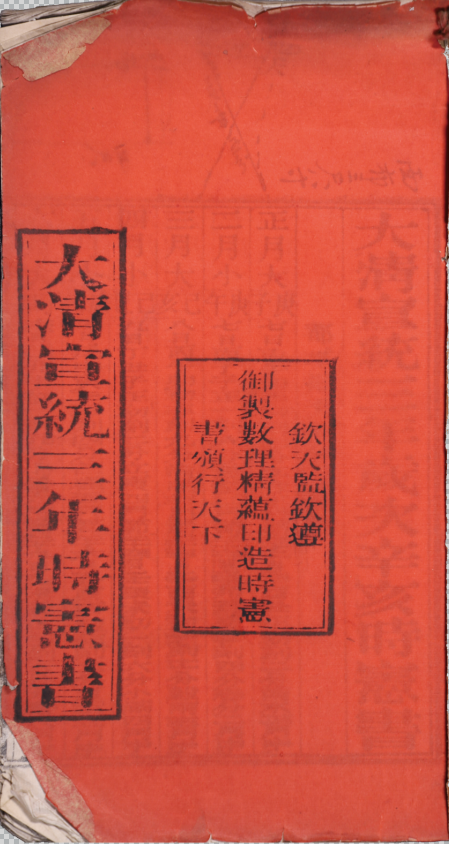 欽天監欽遵
御製數理精蘊印造時憲
書頒行天下
大清宣統三年時憲書